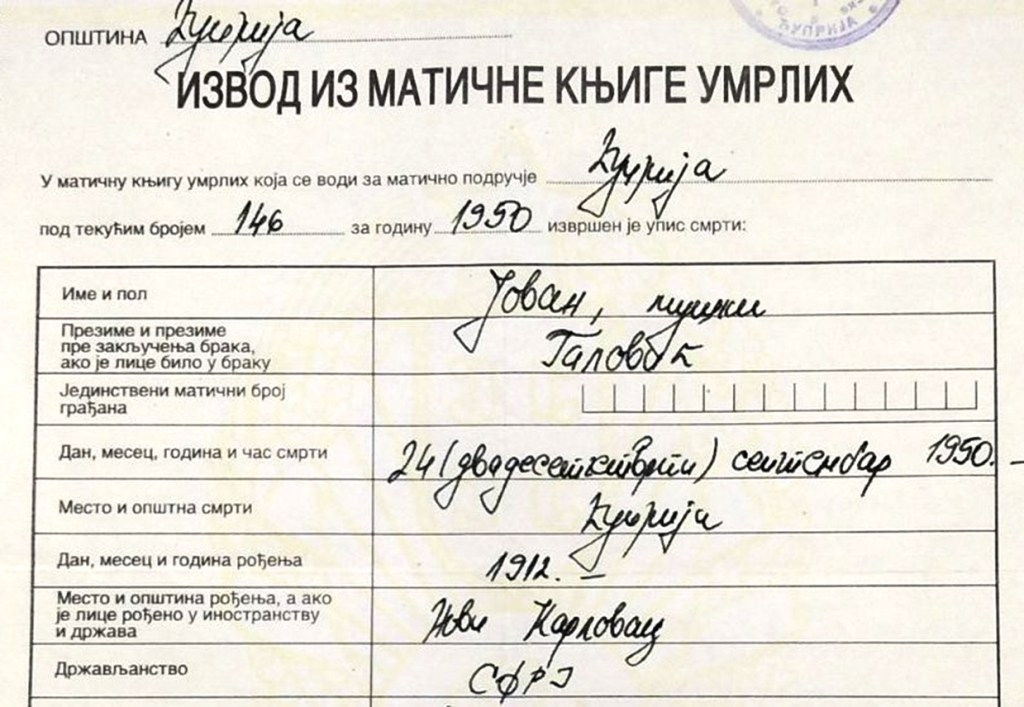 ЋУПРИЈА
ОПШТИНА Ћуприја
ИЗВОД ИЗ МАТИЧНЕ КЊИГЕ УМРЛИХ
У матичну књигу умрлих која се води за матично подручје Ћуприја
под текућим бројем 146 за годину 1950 извршен је упис смрти:
Име и пол Јован, мушки
Презиме и презиме
пре закључења брака,
ако је лице било у браку
Јединствени матични број
грађана
Дан, месец, година и час смрти 24 (двадесетчетврти) септембар 1950. –
Место и општна смрти Ћуприја
Дан, месец и година рођења 1912. –
Место и општина рођења, а ако
је лице рођено у иностранству
и држава
Нови Карловац
Држављанство СФРЈ